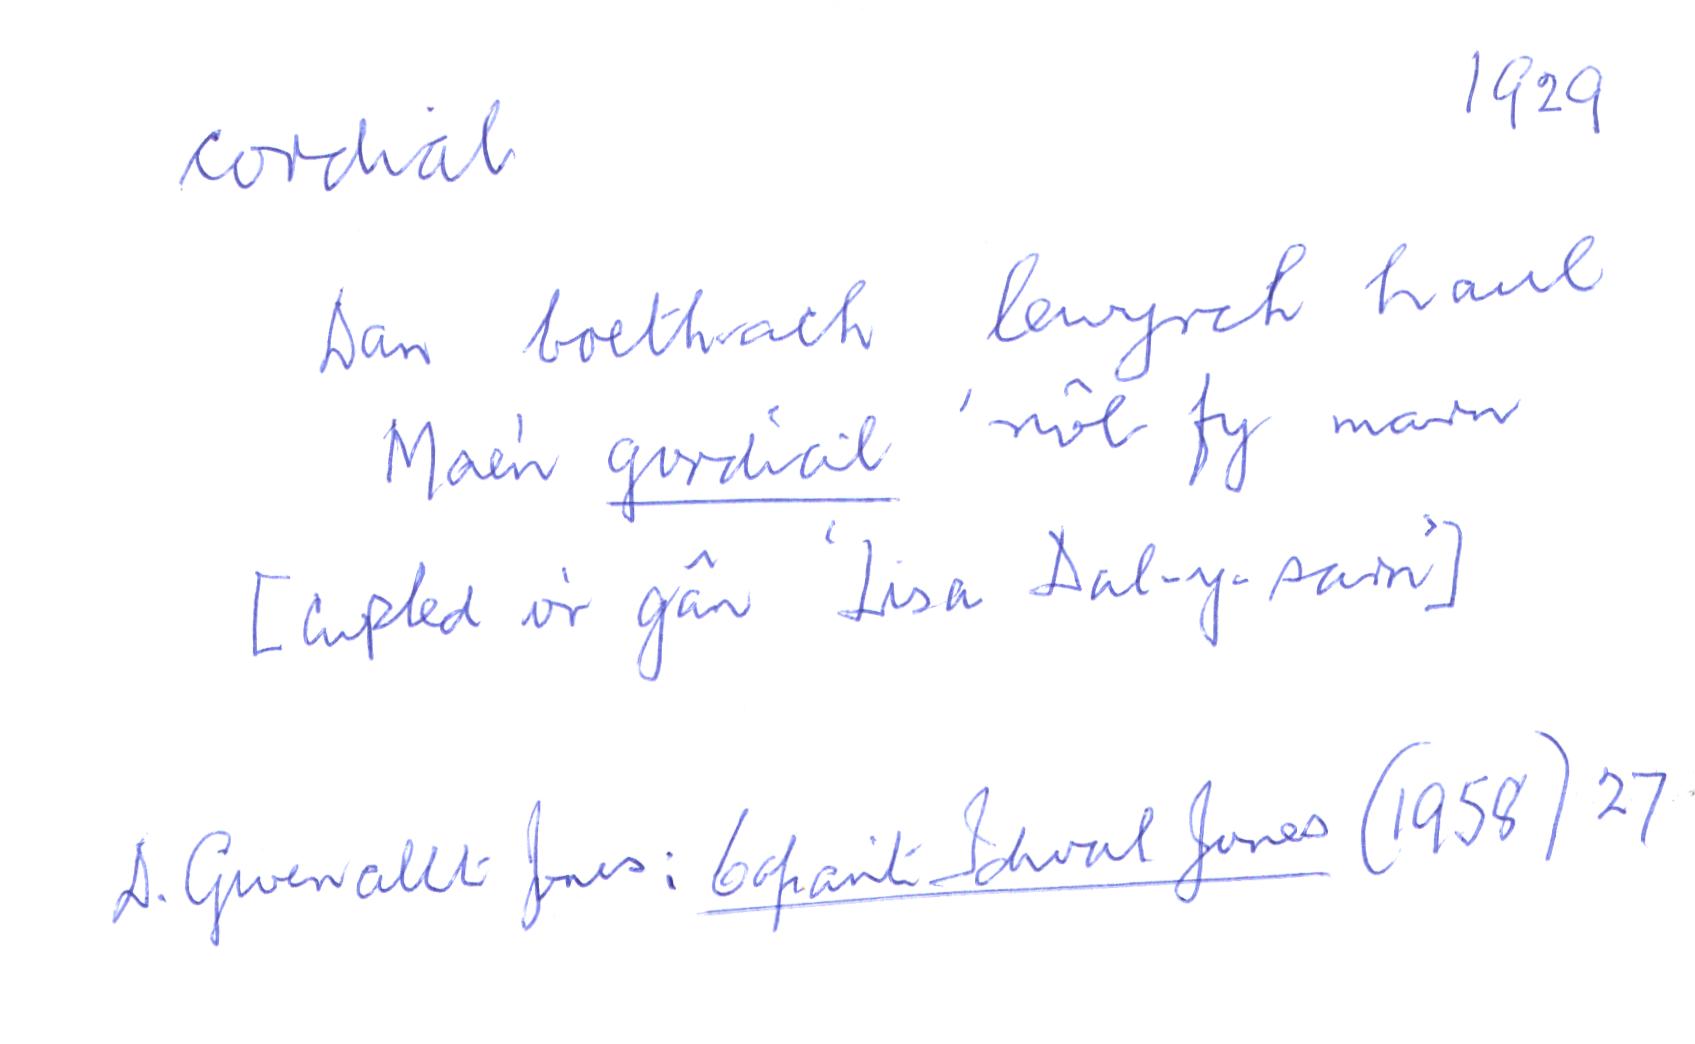 1929
cordial
Dan boethach lewyrch haul
Mae'n gordial 'nôl fy mawn
[cwpled o'r gân 'Lisa Dal-y-sarn']
D. Gwenallt Jones: Cofiant Idwal Jones (1958) 27